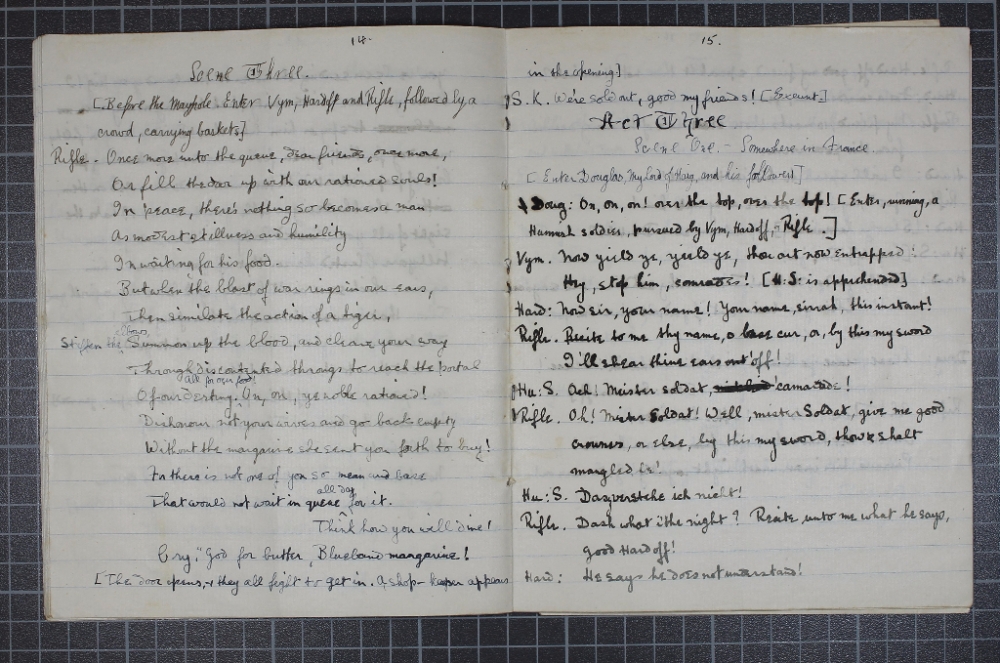 14.
Scene Three.
[Before the Maypole. Enter Vym, Hardoff and Rifle, followed by a
crowd, carrying baskets]
Rifle. Once more unto the queue, dear friends, once more,
Or fill the door up with our rationed souls!
In peace, there's nothing so becomes a man
As modest stillness and humility
In waiting for his food.
But when the blast of war rings in our ears,
Then similate the action of a tiger,
Stiffen the Summon up the blood, and cleave your way
Through discontented throngs to reach the portal
all for our food!
Of our destiny. On, on, ye noble rationed!
Dishonour not your wives and go back empty
Without the margarine she sent you forth to buy!
For there is not one of you so mean and base
all day
That would not wait in queue for it.
Think how you will dine!
Cry, "God for butter, Blueband margarine!
[The door opens, & they all fight to get in. A shop-keeper appears
15.
in the opening]
S.K. We're sold out, good my friends! [Exeunt.]
Act Three
Scene One. - Somewhere in France.
[Enter Douglas, My Lord of Haig, and his followers]
Doug: On, on, on! over the top, over the top! [Enter, running, a
Hunnish soldier, pursued by Vym, Hardoff, Rifle.]
Vym. Now yield ye, yield ye, thou art now entrapped!
Hey, stop him, comrades! [H:S: is apprehended]
Hard: Now sir, your name! Your name, sirrah, this instant!
Rifle. Recite to me thy name, o base cur, or, by this my sword
I'll shear thine ears out off!
Hu: S. Ach! Meister soldat, camarade!
Rifle. Oh! Mister Soldat! Well, mister Soldat, give me good
crowns, or else, by this my sword, thou shalt
mangled be!
Hu: S. Das verstehe ich nicht!
Rifle. Dash what i' the night? Recite unto me what he says,
good Hardoff!
Hard: He says he does not understand!